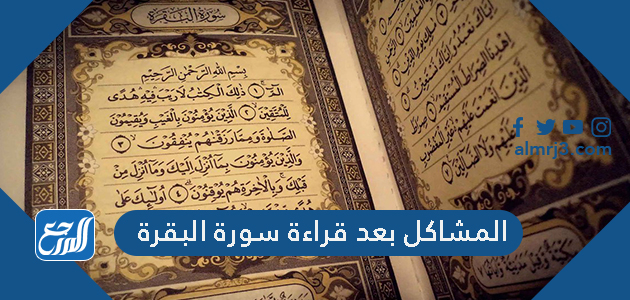 سُورَةُ البَقَرَةِ
بِسْمِ اللَّهِ الرَّحْمَٰنِ الرَّحِيمِ
الٓمٓ ١ ذَٰلِكَ الْكِتَٰبُ لَا رَيْبَ فِيهِ هُدًى
لِّلْمُتَّقِينَ ٢ الَّذِينَ يُؤْمِنُونَ بِالْغَيْبِ وَيُقِيمُونَ
الصَّلَوٰةَ وَمِمَّا رَزَقْنَٰهُمْ يُنفِقُونَ ٣
وَالَّذِينَ يُؤْمِنُونَ بِمَا أُنزِلَ إِلَيْكَ وَمَا أُنزِلَ مِن
قَبْلِكَ وَبِالْآخِرَةِ هُمْ يُوقِنُونَ ٤ أُولَٰئِكَ عَلَىٰ
إِيَّاكَ نَعْبُدُ وَإِيَّاكَ نَسْتَعِينُ
اهْدِنَا الصِّرَٰطَ الْمُسْتَقِيمَ صِرَٰطَ
الَّذِينَ أَنْعَمْتَ عَلَيْهِمْ غَيْرِ الْمَغْضُوبِ
عَلَيْهِمْ وَلَا الضَّالِّينَ
almrj3.com
المرجع
المشاكل بعد قراءة سورة البقرة